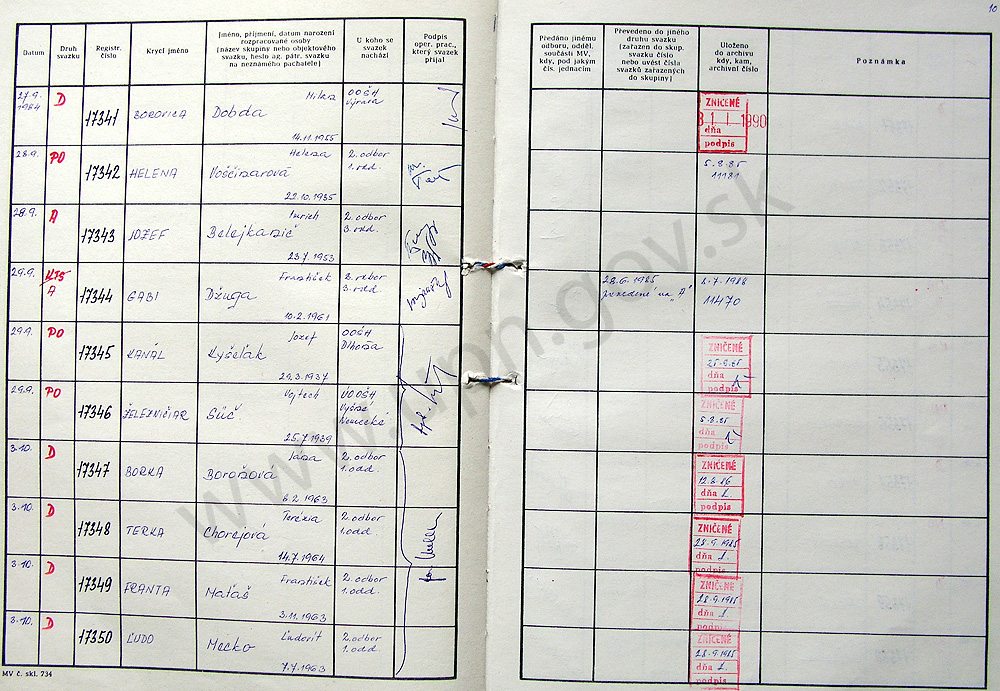 10
Datum
Druh svazku
Registr. číslo
Krycí jméno
Jméno, příjmení, datum narození
rozpracované osoby
(název skupiny nebo objektového
svazku, heslo ag. pátr. svazku
na neznámého pachatele)
U koho se
svazek
nachází
Podpis
oper. prac.,
který svazek
přijal
Předáno jinému
odboru, odděl.
součásti MV,
kdy, pod jakým
čís. jednacím
Převedeno do jiného
druhu svazku
(zařazen do skup.
svazku číslo
nebo uvést čísla
svazků zařazených
do skupiny)
Uloženo
do archivu
kdy, kam,
archivní číslo
Poznámka
27.9. 1984 D 17341 BOROVICA Dobda Milan 14.11.1955 OOŠH Výrava
ZNIČENÉ
31 1 1990
dňa
podpis
28.9. PO 17342 HELENA Voščinarová Helena 22.10.1935 2. odbor
5.8.85
11181
28.9. A 17343 JOZEF Belejkanič 23.7.1953 2. odbor
29.9. KTS A 17344 GABI Džuga František 10.2.1961
28.6.1985 prevedené na "A"
11470
29.9. PO 17345 KANÁL Kyšeľak Jozef 29.3.1937 OOŠH
ZNIČENÉ
dňa
podpis
29.9. PO 17346 ŽELEZNIČIAR Súč Vojtech 25.7.1939
ZNIČENÉ
5.8.85
dňa
podpis
3.10. D 17347 BORKA Borošová Jana 6.2.1963 2. odbor 1. odd.
ZNIČENÉ
12.2.86
dňa
podpis
3.10. D 17348 TERKA Chorejová Terézia 14.7.1964 2. odbor 1. odd.
ZNIČENÉ
28.9.1985
dňa
podpis
3.10. D 17349 FRANTA Mataš František 3.11.1963 2. odbor 1. odd.
ZNIČENÉ
28.9.1985
dňa
podpis
3.10. D 17350 ĽUDO Mecko Ľudovít 7.7.1963 2. odbor 1. odd.
ZNIČENÉ
28.9.1985
dňa
podpis
MV č. skl. 734
www.upn.gov.sk